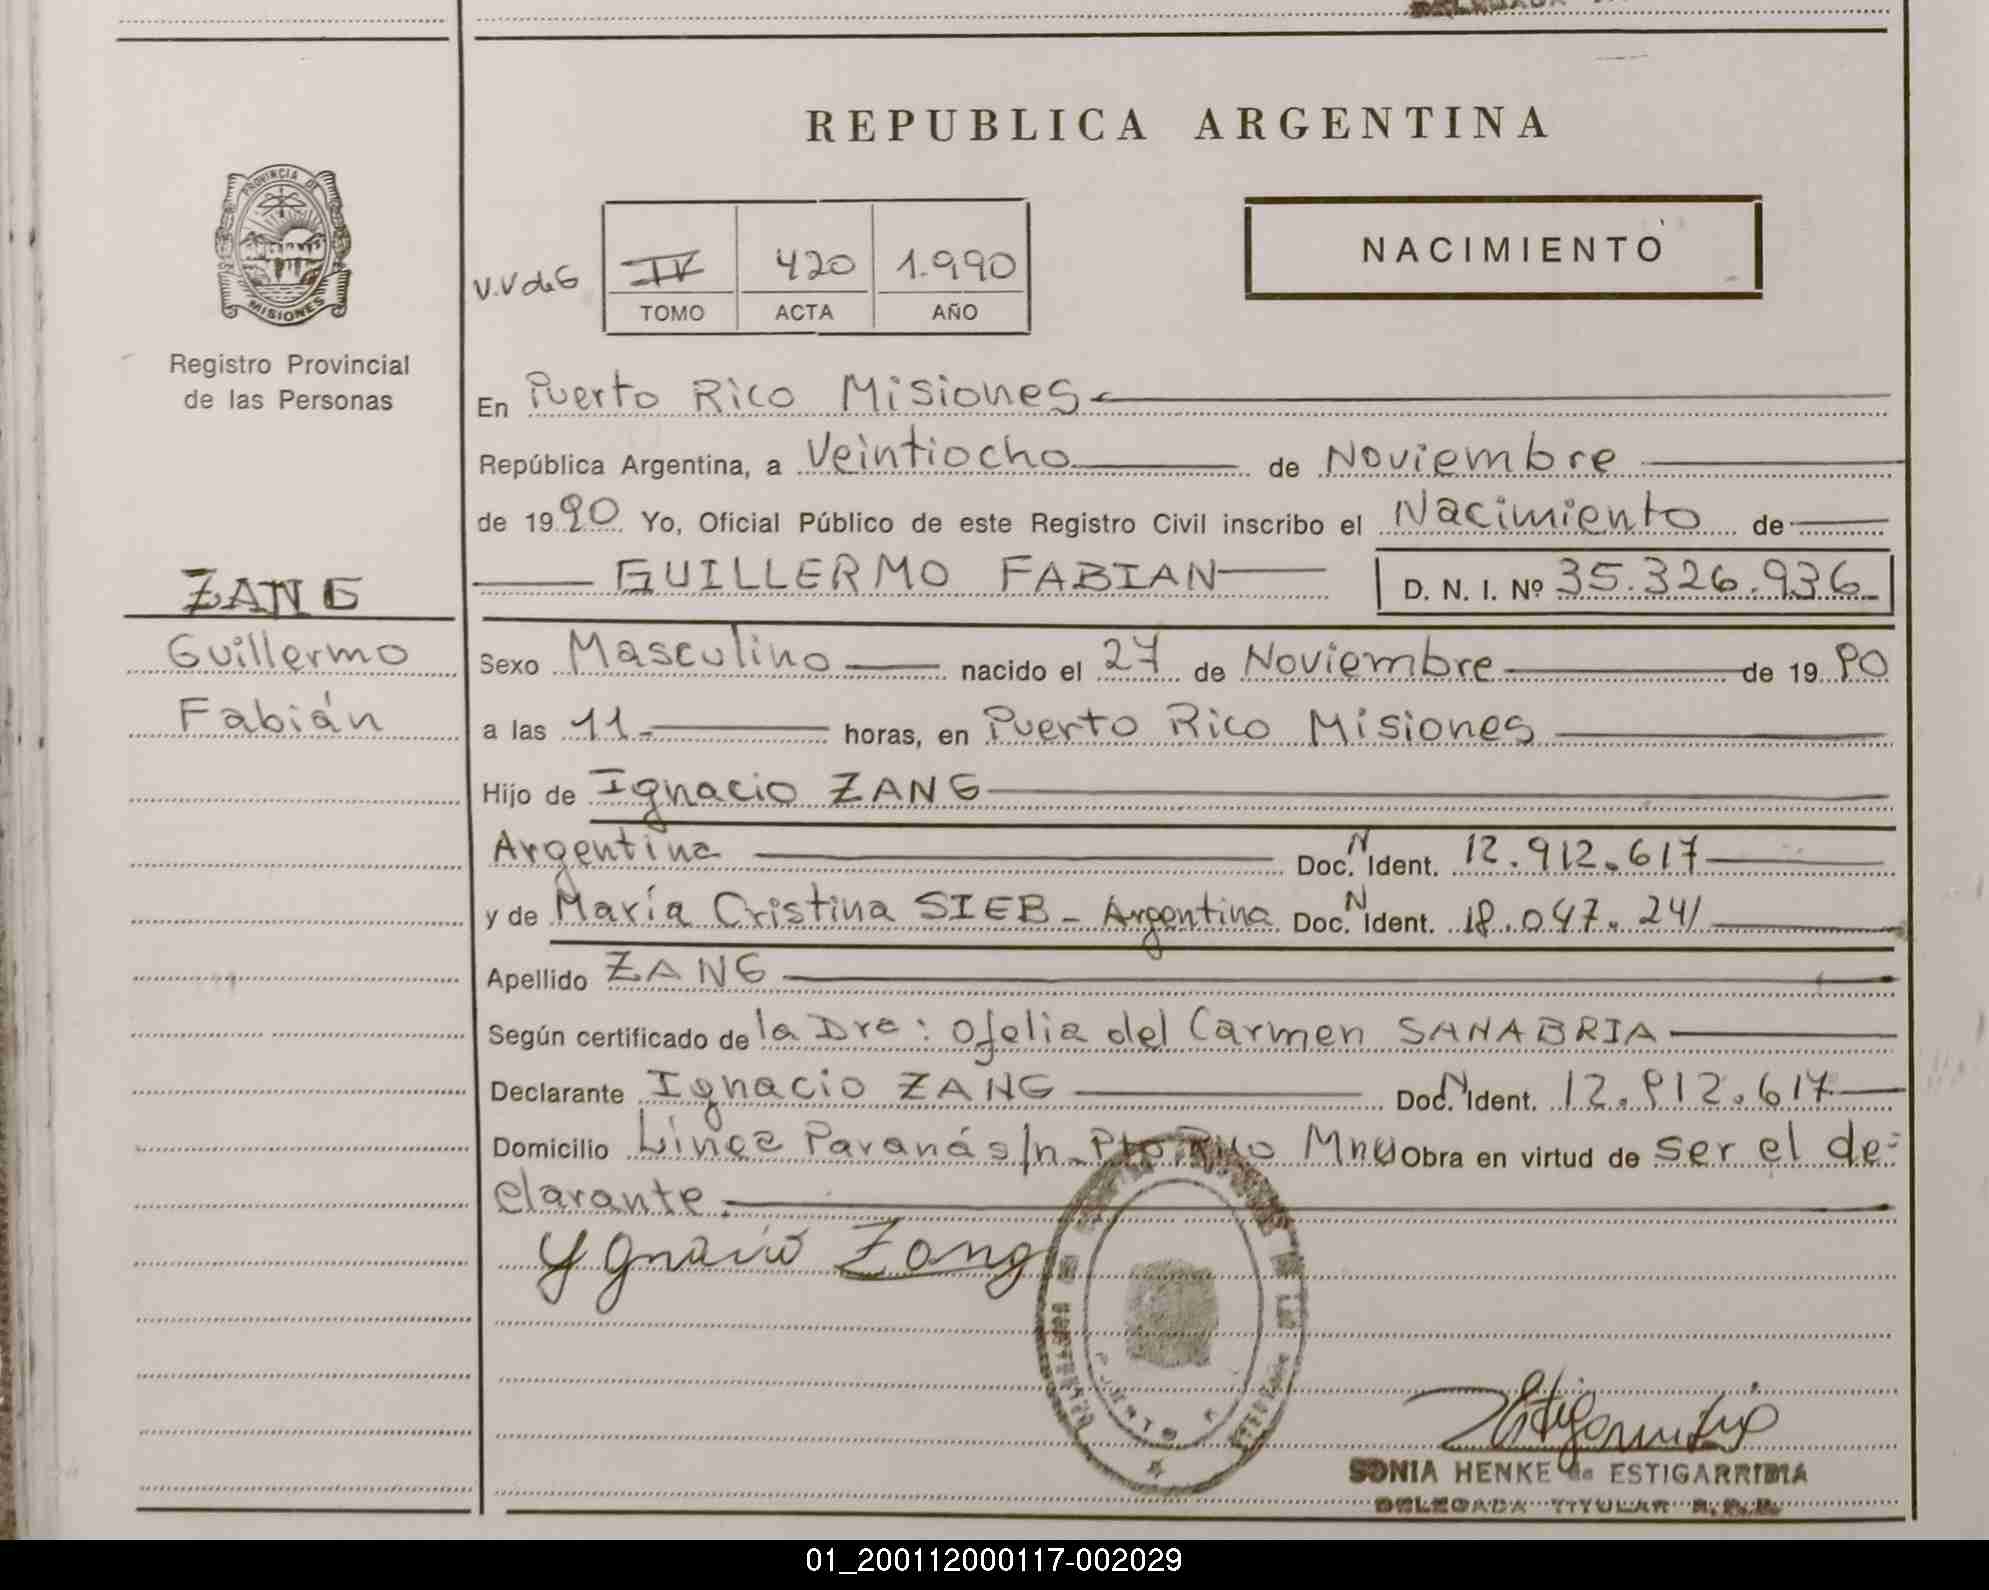 REPUBLICA ARGENTINA
PROVINCIA DE
MISIONES
Registro Provincial
de las Personas
NACIMIENTO
V.V de G
IV 420 1.990
TOMO ACTA AÑO
En Puerto Rico Misiones
República Argentina, a Veintiocho de Noviembre
de 1990 Yo, Oficial Público de este Registro Civil inscribo el Nacimiento de
GUILLERMO FABIAN D. N. I. Nº 35.326.936
ZANG
Guillermo
Fabián
Sexo Masculino nacido el 27 de Noviembre de 1990
a las 11 horas, en Puerto Rico Misiones
Hijo de Ignacio ZANG
Argentina Doc. N Ident. 12.912.617
y de María Cristina SIEB - Argentina Doc. N Ident. 18.047.241
Apellido ZANG
Según certificado de la Dra: Ofelia del Carmen SANABRIA
Declarante Ignacio ZANG Doc. N Ident. 12.912.617
Domicilio Línea Paraná s/n Pto Rico Mnes Obra en virtud de ser el de-
clarante.
Ygnacio Zang
SONIA HENKE de ESTIGARRIBIA
DELEGADA TITULAR R.P.P.
01_200112000117-002029